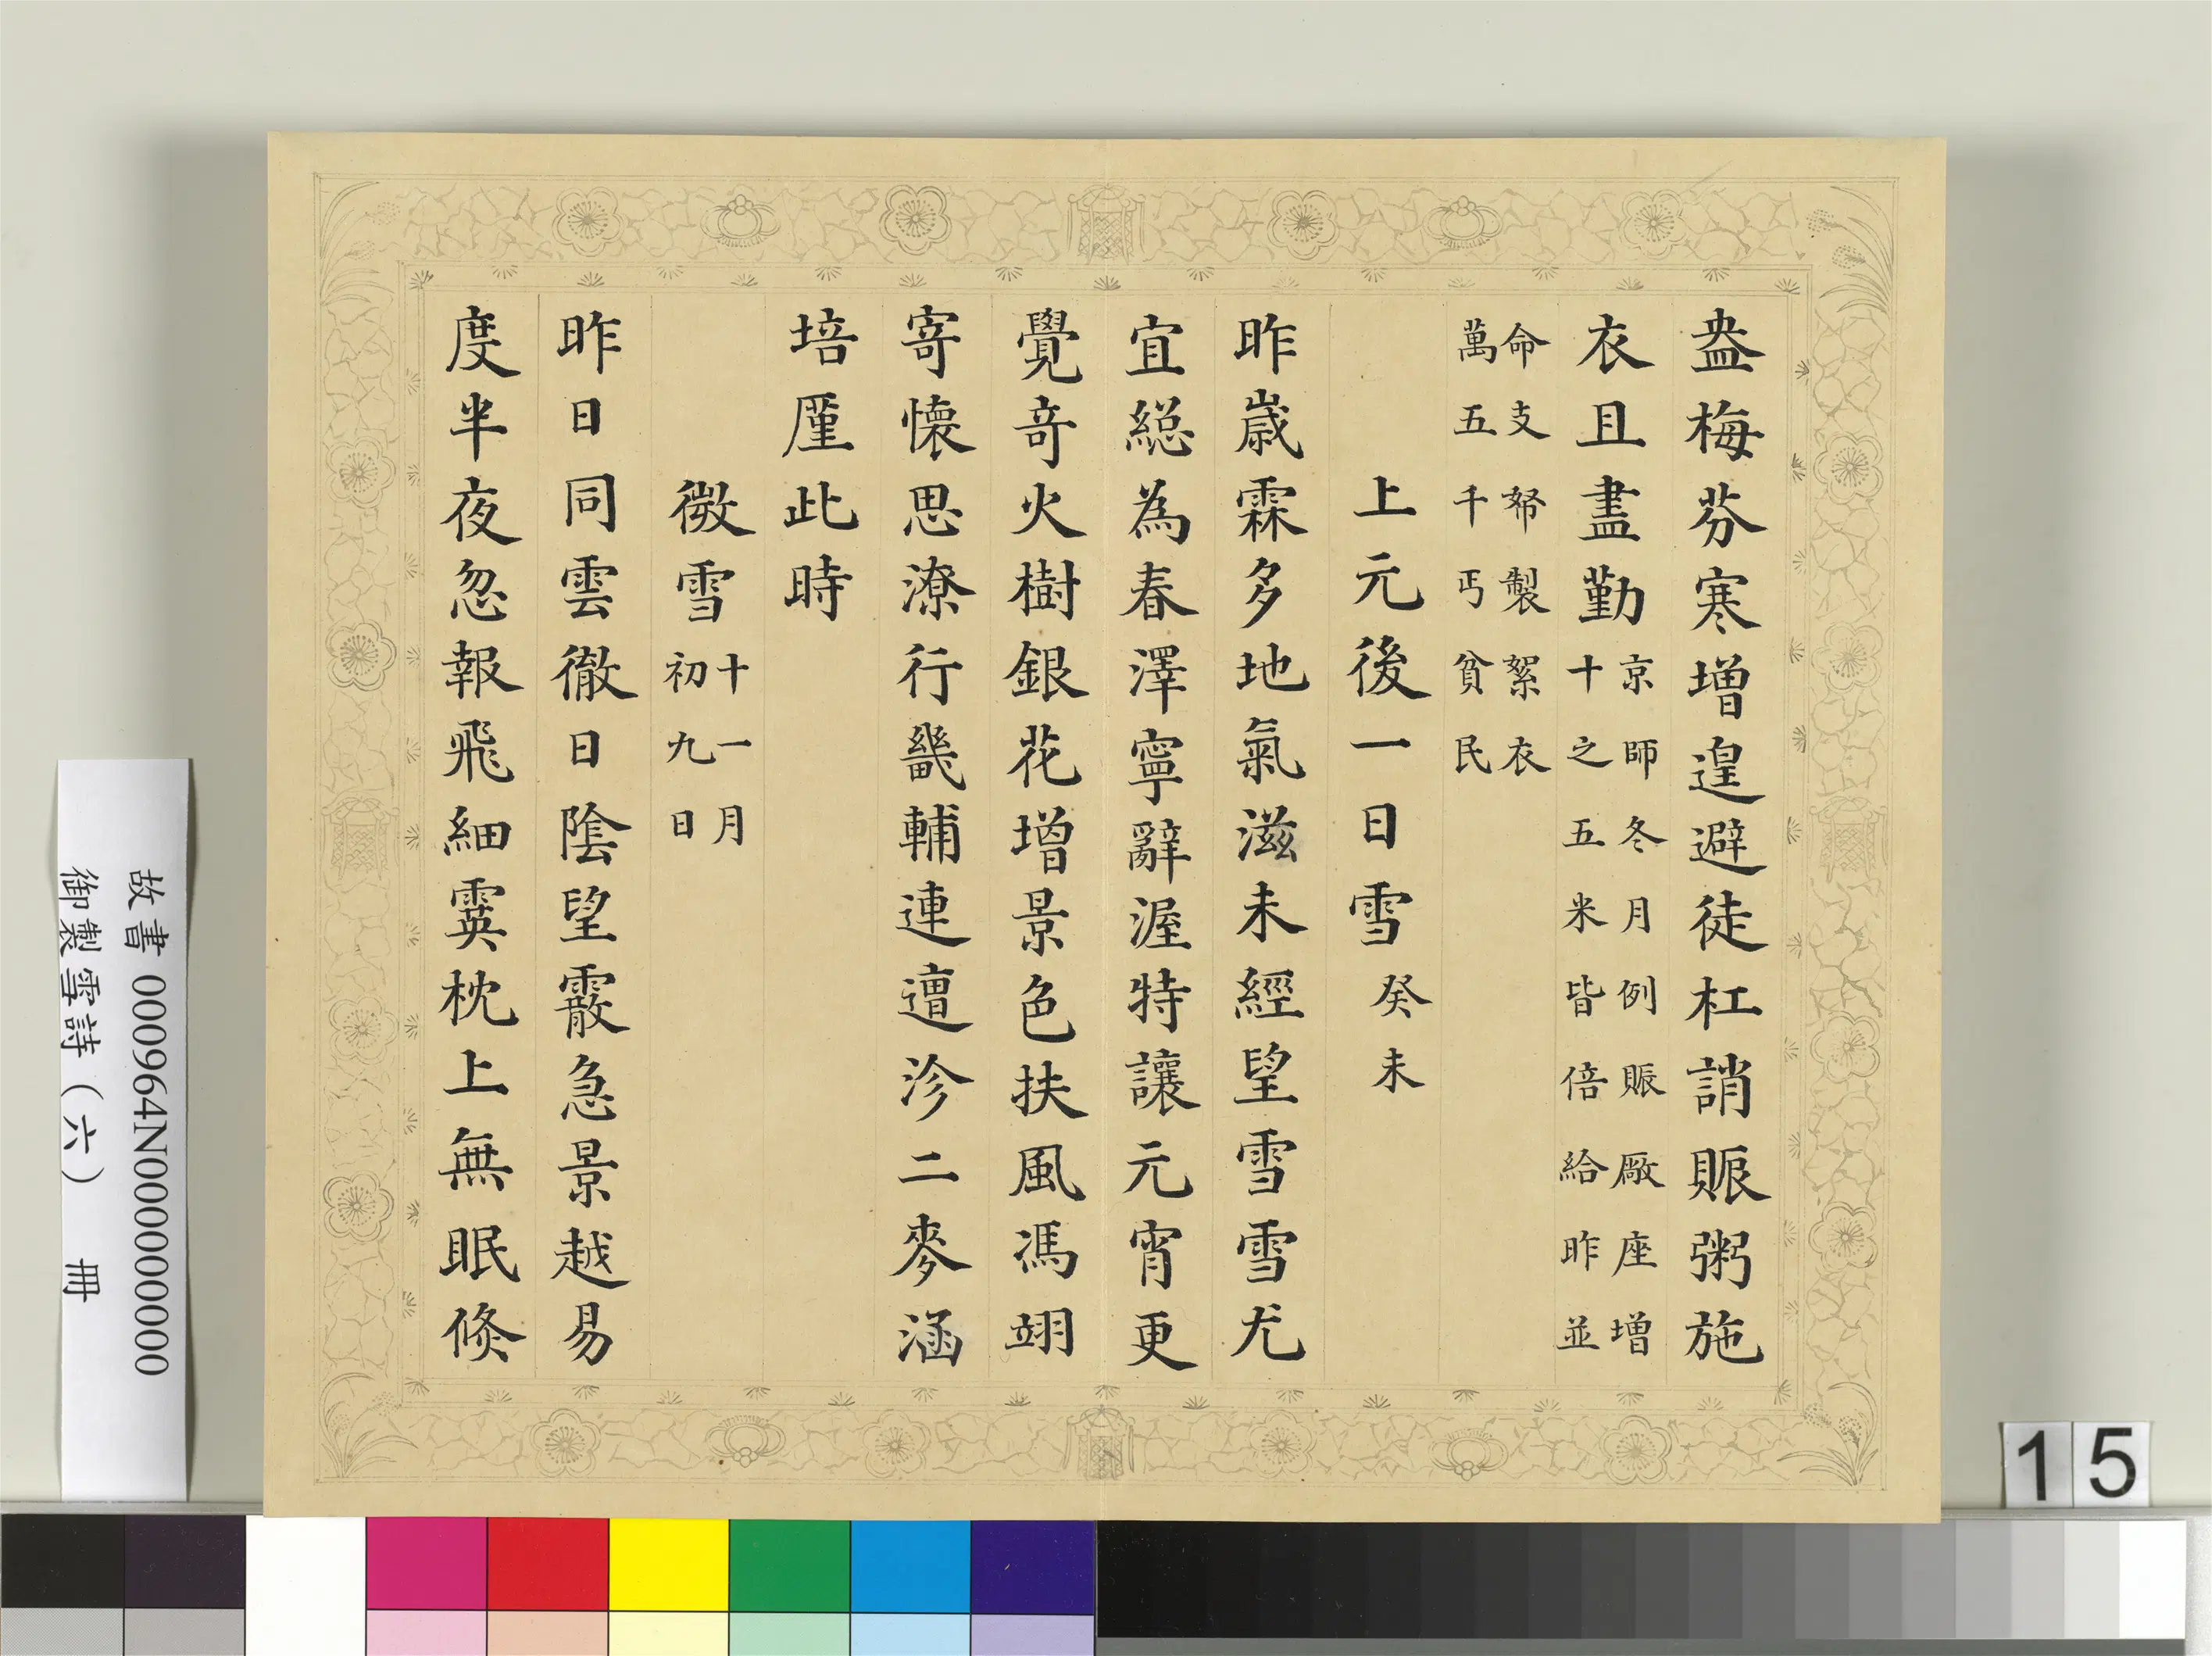 盎梅芬寒増遑避徒杠誚賑粥施
衣且盡勤京師冬月例賑厰座增
十之五米皆倍給昨並
命支帑製絮衣
萬五千丐貧民
上元後一日雪癸未
昨歲霖多地氣滋未經望雪雪尤
宜総為春澤寧辭渥特讓元宵更
覺竒火樹銀花增景色扶風馮翊
寄懷思潦行畿輔連邅沴二麥涵
培厪此時
微雪十一月
初九日
昨日同雲徹日陰望霰急景越易
度半夜忽報飛細霙枕上無眠倐
故書 000964N000000000
御製雪詩（六） 冊
15